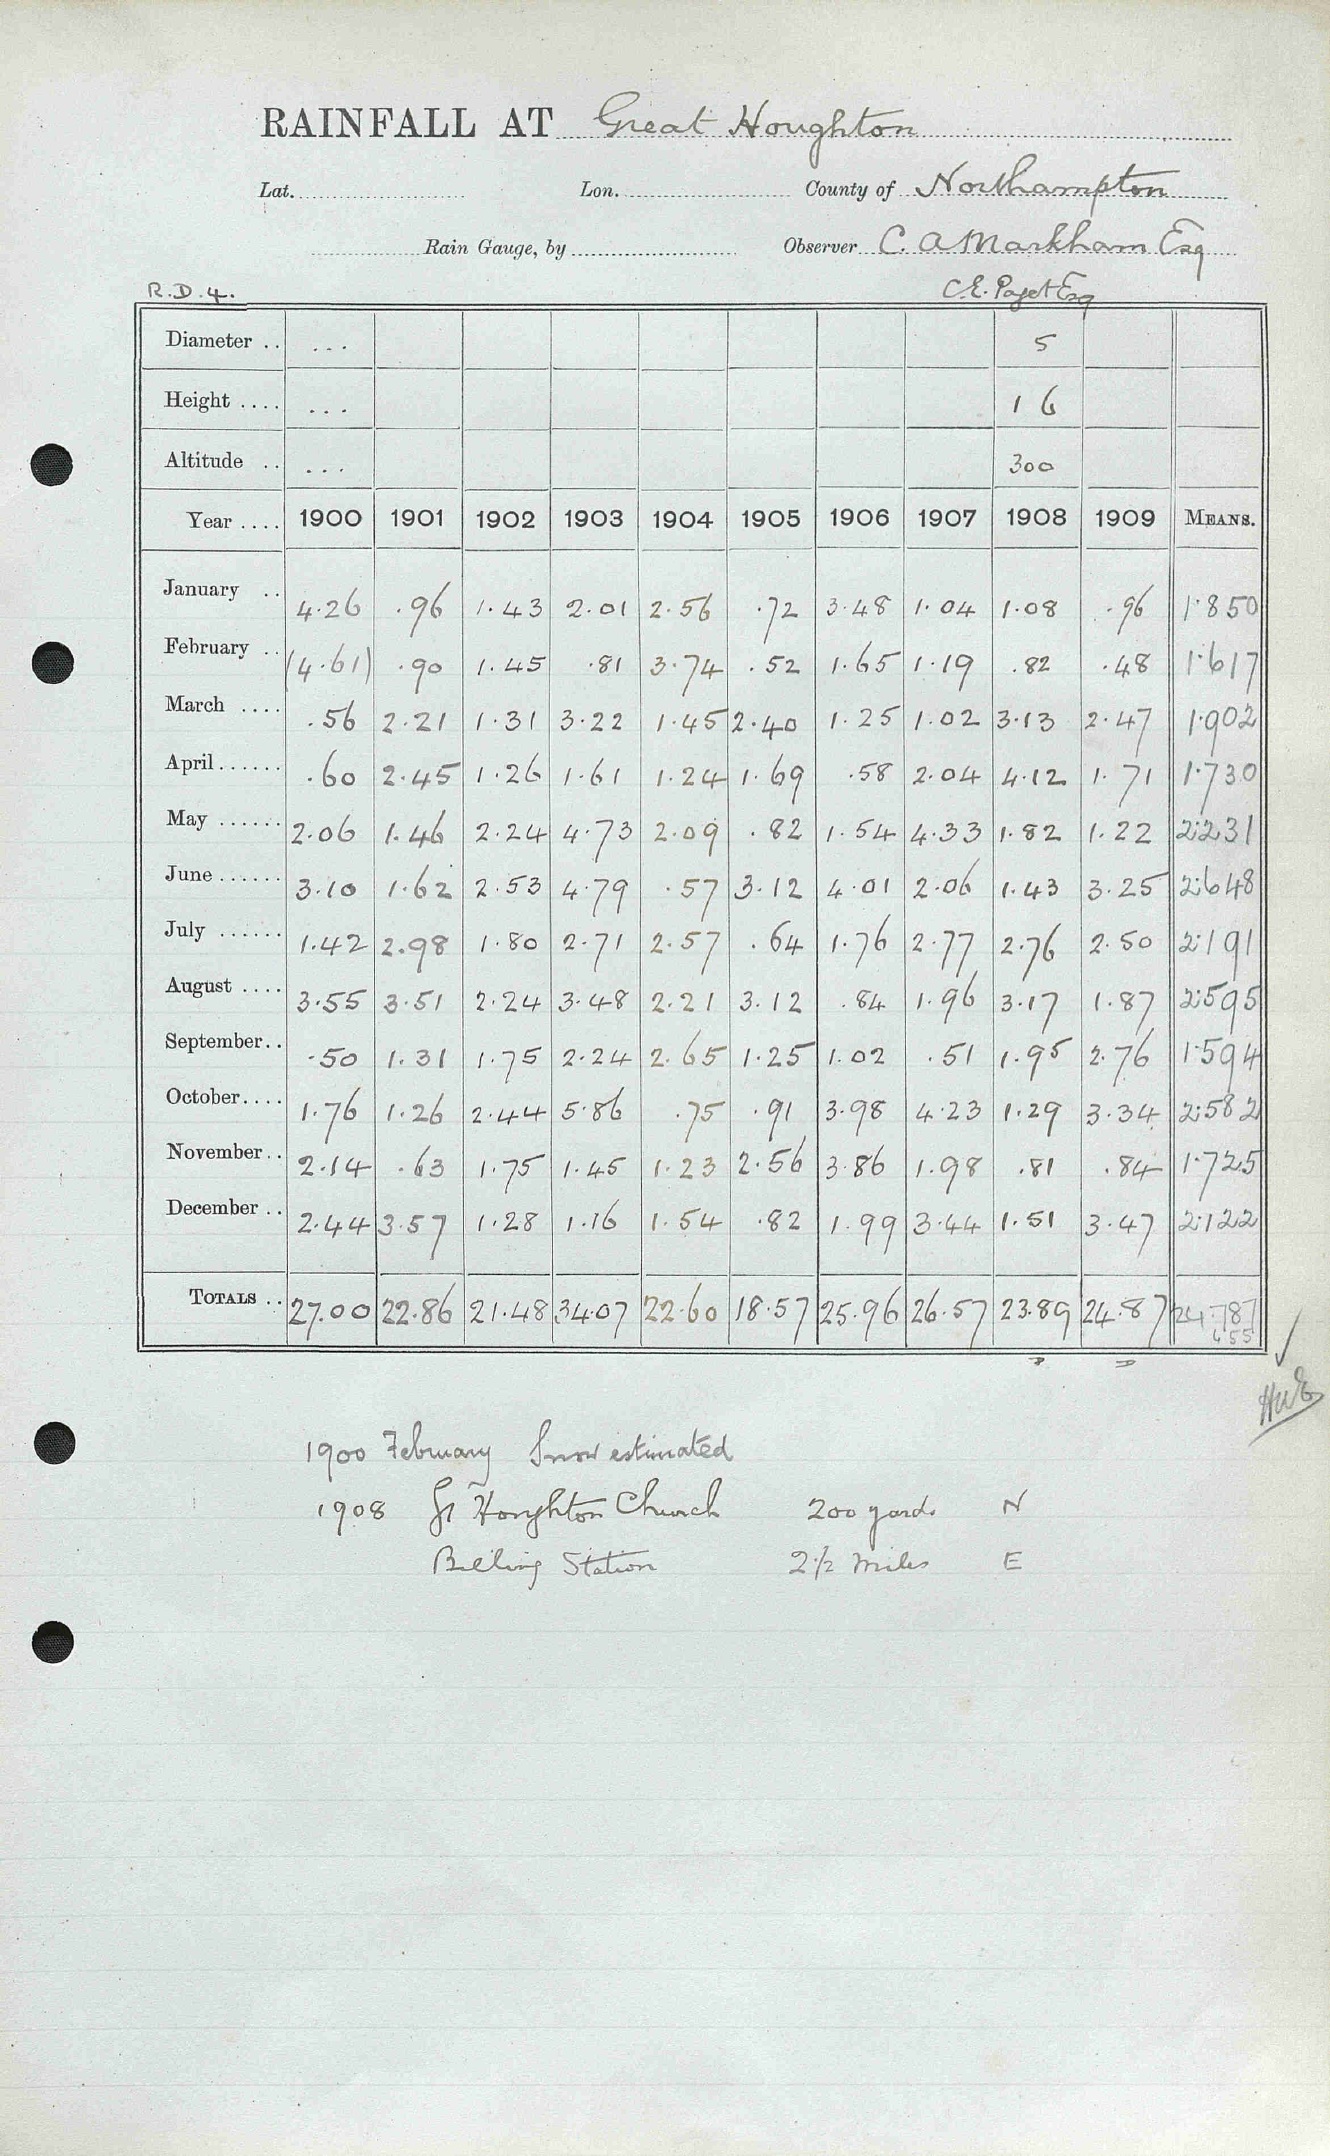 RAINFALL AT Great Houghton
Lat. Lon. County of Northampton
Rain Gauge, by Observer C. A Markham Esq
R.D.4. C.E. Paget Esq
Diameter .. ... 5
Height .... ... 1 6
Altitude .. ... 300
Year .... 1900 1901 1902 1903 1904 1905 1906 1907 1908 1909 MEANS.
January .. 4.26 .96 1.43 2.01 2.56 .72 3.48 1.04 1.08 .96 1.850
February .. (4.61) .90 1.45 .81 3.74 .52 1.65 1.19 .82 .48 1.617
March .... .56 2.21 1.31 3.22 1.45 2.40 1.25 1.02 3.13 2.47 1.902
April...... .60 2.45 1.26 1.61 1.24 1.69 .58 2.04 4.12 1.71 1.730
May ...... 2.06 1.46 2.24 4.73 2.09 .82 1.54 4.33 1.82 1.22 2.231
June...... 3.10 1.62 2.53 4.79 .57 3.12 4.01 2.06 1.43 3.25 2.648
July ...... 1.42 2.98 1.80 2.71 2.57 .64 1.76 2.77 2.76 2.50 2.191
August .... 3.55 3.51 2.24 3.48 2.21 3.12 .84 1.96 3.17 1.87 2.595
September.. .50 1.31 1.75 2.24 2.65 1.25 1.02 .51 1.95 2.76 1.594
October.... 1.76 1.26 2.44 5.86 .75 .91 3.98 4.23 1.29 3.34 2.582
November.. 2.14 .63 1.75 1.45 1.23 2.56 3.86 1.98 .81 .84 1.725
December .. 2.44 3.57 1.28 1.16 1.54 .82 1.99 3.44 1.51 3.47 2.122
TOTALS .. 27.00 22.86 21.48 34.07 22.60 18.57 25.96 26.57 23.89 24.87 24.787
1900 February Snow estimated
1908 Gt Houghton Church 200 yards N
Billing Station 2 1/2 miles E